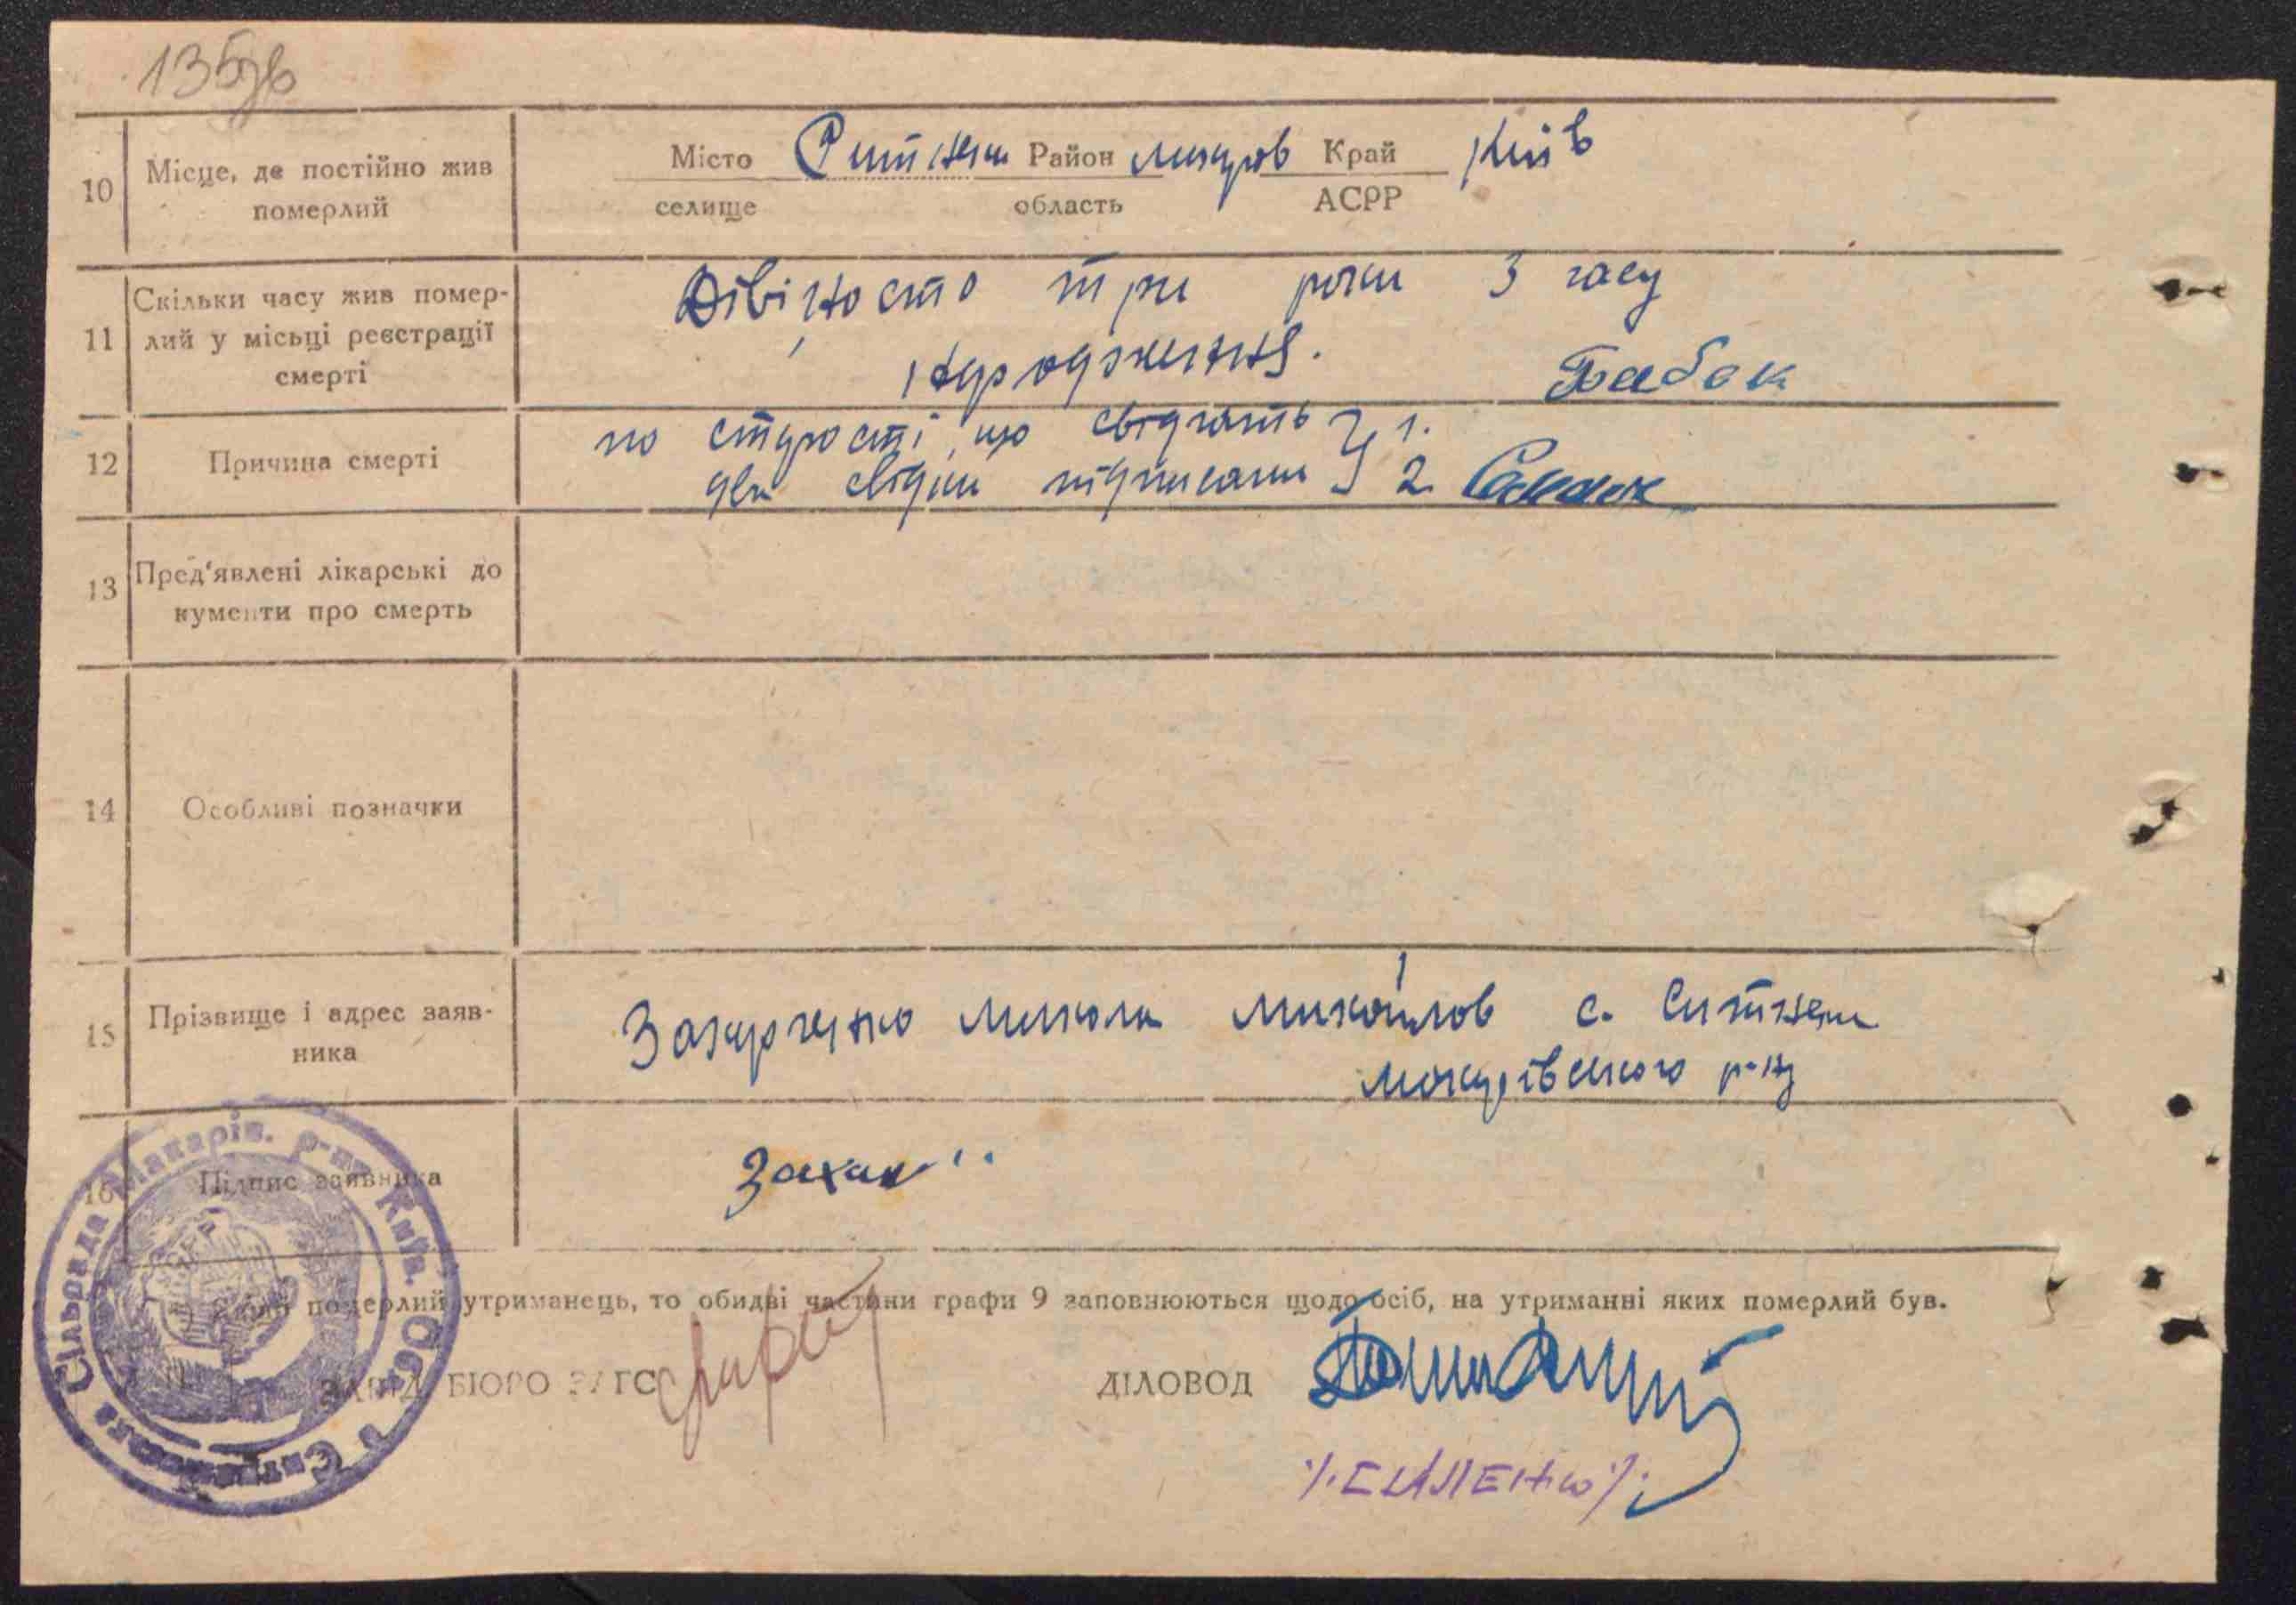 135зв
10 Місце, де постійно жив померлий
Місто Ситняки Район Макаров Край Київ
селище область АСРР
11 Скільки часу жив помер-
лий у місьці реєстрації
смерті
Дівіносто три роки З часу
народження.
12 Причина смерті
по старості, що свідчать 1. Бабак
два свідки підписами 2.
13 Пред'явлені лікарські до
кументи про смерть
14 Особливі позначки
15 Прізвище і адрес заяв-
ника
Захарченко Микола Михайлов с. Ситняки
Макарівського р-ну
16 Підпис заявника
Захар
померлий утриманець, то обидві частини графи 9 заповнюються щодо осіб, на утриманні яких померлий був.
ЗАВІД. БЮРО ЗАГС
ДІЛОВОД
Сільрада Макарів. р-на Київ. Обл.